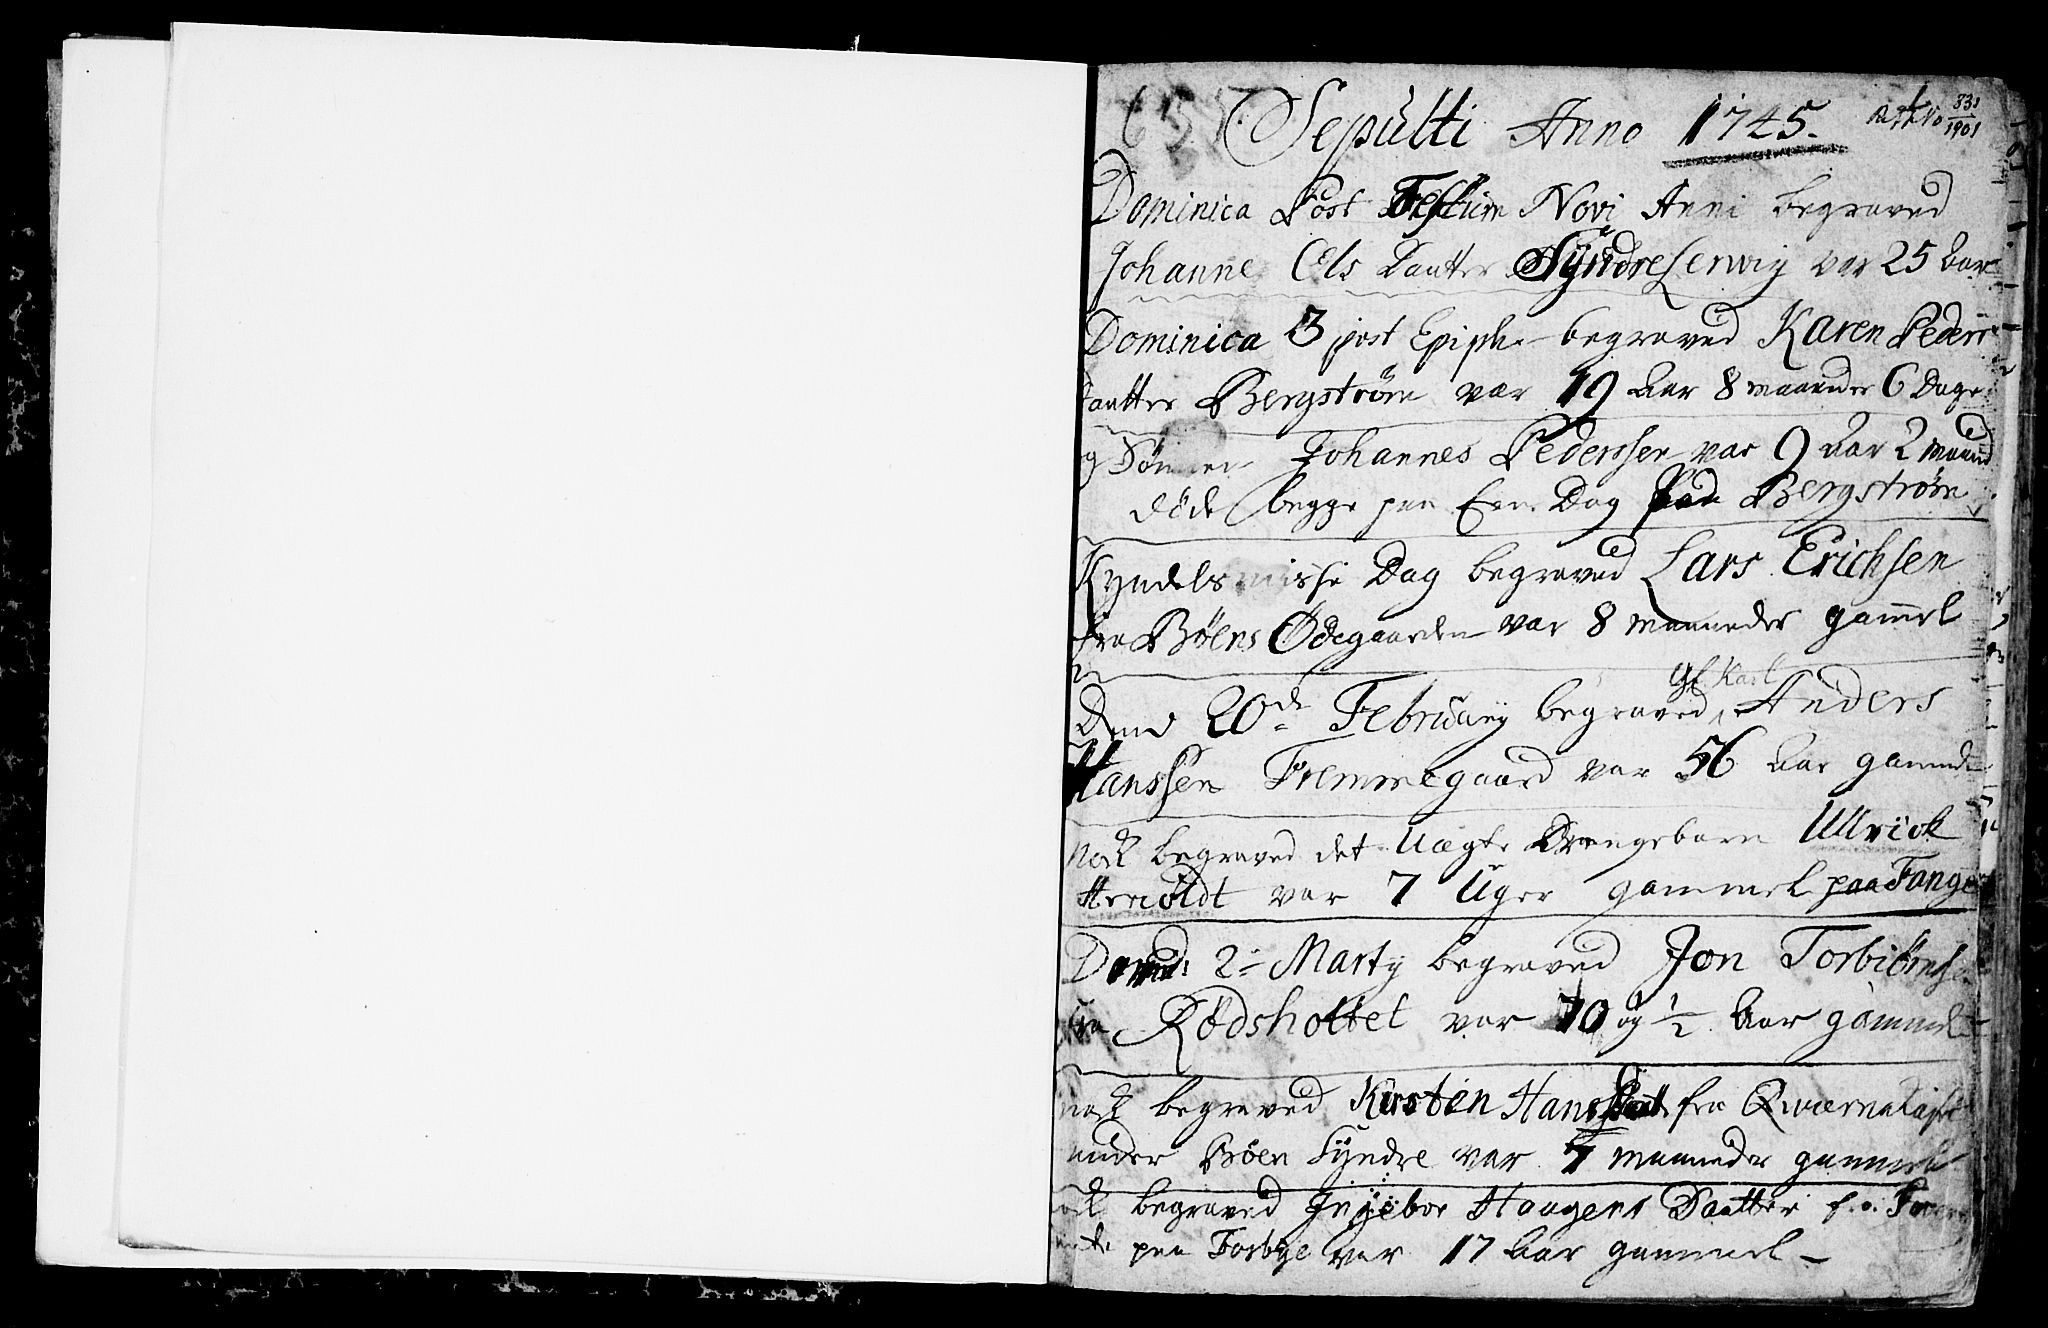 Sepulti Anno 1745. 331/1901
Dominica Post Festum Novi Anni begraved
Johanne Ols Daatter Syndre Serwig var 25 aar
Dominica 3 post Epiph. begraved Karen Peders
Daatter Bergstrøm var 19 aar 8 maaneder 6 Dage
og Sønnen Johannes Pederssen var 9 aar 2 maaned
døde begge paa Een Dag Bergstrøm
Kyndelsmisse Dag begraved Lars Erichsen
fra Bøens Ødegaarden var 8 maaneder gam̅el
Gl. Karl
Dend 20de February begraved Anders
Hanssen Fremmegaard var 56 aar gammel
nock begraved det Uægte Drengebarn Ullrick
var 7 Uger gammel paa Tange
Dend 2 Martÿ begraved Jon Torbiörnsen
fra Rödshottet var 70 og 1/2 aar gammel
nock begraved Kirsten Hans fra
under Bøen Syndre var 7 maaneder gammel
nock begraved Ingebor Haagens Daatter
paa Forbye var 17 aar gammel